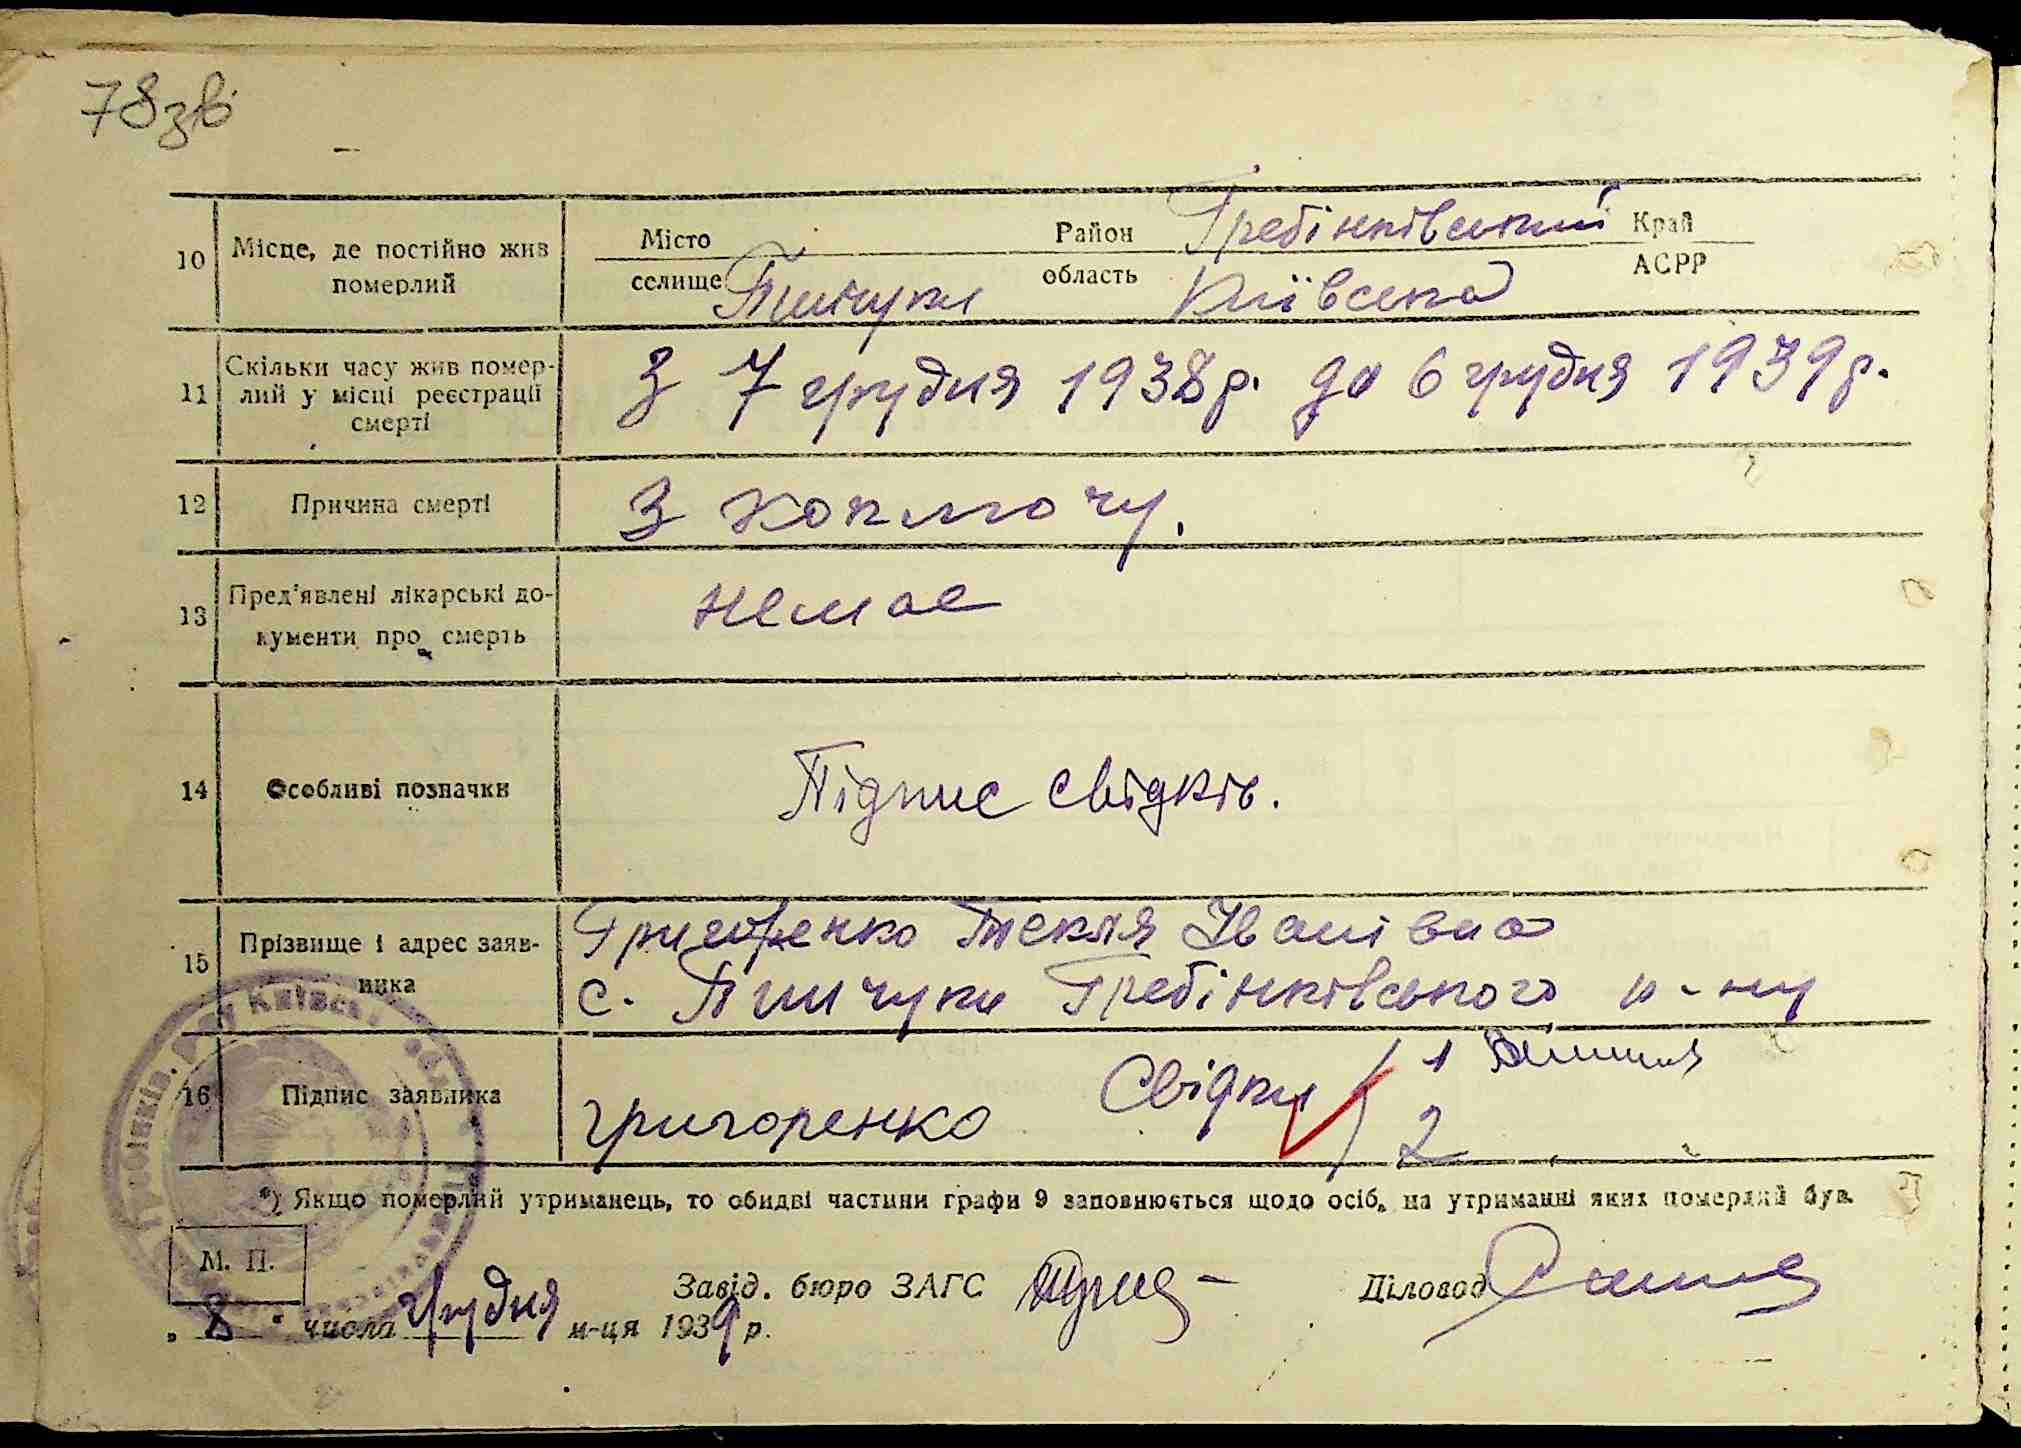 78зв
10 Місце, де постійно жив померлий
Місто селище Пінчуки Район Гребінківський область Київська Край АСРР
11 Скільки часу жив помер-
лий у місці реєстрації
смерті
З 7 грудня 1938р. до 6 грудня 1939р.
12 Причина смерті
З коклюшу.
13 Пред'явлені лікарські до-
кументи про смерть
немає
14 Особливі позначки
Підпис свідків.
15 Прізвище і адрес заяв-
ника
Григоренко Текля Іванівна
с. Пінчуки Гребінківського р-ну
16 Підпис заявника
григоренко Свідки 1
2
*) Якщо померлий утриманець, то обидві частини графи 9 заповнюється щодо осіб, на утриманні яких померлий був.
М. П.
Завід. бюро ЗАГС
Діловод
„ 8 " числа грудня м-ця 1939 р.